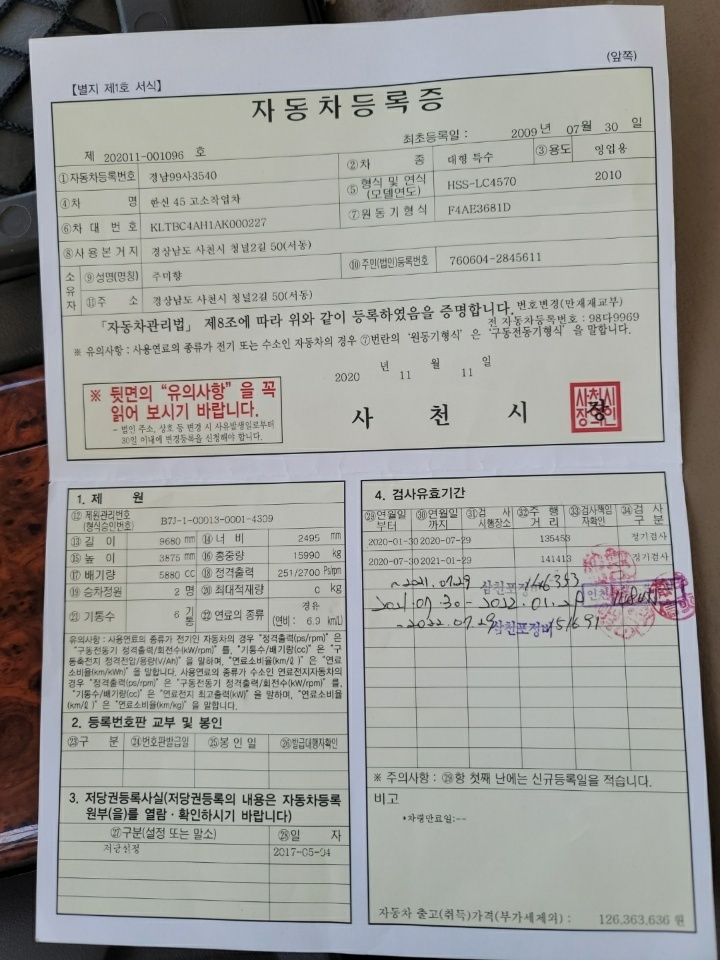 (앞쪽)
【별지 제1호 서식】
자동차등록증
제 202011-001096 호
최초등록일 : 2009년 07월 30 일
①자동차등록번호 경남99사3540 ②차 종 대형 특수 ③용도 영업용
④차 명 한신 45 고소작업차 ⑤형식 및 연식 (모델연도) HSS-LC4570 2010
⑥차 대 번 호 KLTBC4AH1AK000227 ⑦원동기형식 F4AE3681D
⑧사용본거지 경상남도 사천시 청널2길 50(서동)
소유자 ⑨성명(명칭) 주미향 ⑩주민(법인)등록번호 760604-2845611
⑪주 소 경상남도 사천시 청널2길 50(서동)
「자동차관리법」 제8조에 따라 위와 같이 등록하였음을 증명합니다. 번호변경(만재재교부)
전 자동차등록번호 : 98다9969
※ 유의사항 : 사용연료의 종류가 전기 또는 수소인 자동차의 경우 ⑦번란의 '원동기형식' 은 '구동전동기형식' 을 말합니다.
2020 년 11 월 11 일
※ 뒷면의 "유의사항" 을 꼭
읽어 보시기 바랍니다.
- 법인 주소, 상호 등 변경 시 사유발생일로부터
30일 이내에 변경등록을 신청해야 합니다.
사 천 시 장
사천시
장의인
1. 제 원
⑫제원관리번호 (형식승인번호) B7J-1-00013-0001-4309
⑬길 이 9680 mm ⑭너 비 2495 mm
⑮높 이 3875 mm ⑯총중량 15990 kg
⑰배기량 5880 cc ⑱정격출력 251/2700 Ps/rpm
⑲승차정원 2 명 ⑳최대적재량 0 kg
㉑기통수 6 기통 ㉒연료의 종류 경유 (연비 : 6.0 km/L)
유의사항 : 사용연료의 종류가 전기인 자동차의 경우 "정격출력(ps/rpm)" 은
"구동전동기 정격출력/회전수(kW/rpm)" 를, "기통수/배기량(cc)" 은 "구
동축전지 정격전압/용량(V/Ah)" 을 말하며, "연료소비율(km/ℓ)" 은 "연료
소비율(km/kWh)" 을 말합니다. 사용연료의 종류가 수소인 연료전지자동차의
경우 "정격출력(ps/rpm)" 은 "구동전동기 정격출력/회전수(kW/rpm)" 를,
"기통수/배기량(cc)" 은 "연료전지 최고출력(kW)" 을 말하며, "연료소비율
(km/ℓ)" 은 "연료소비율(km/kg)" 을 말합니다.
2. 등록번호판 교부 및 봉인
㉓구 분 ㉔번호판발급일 ㉕봉 인 일 ㉖발급대행자확인
3. 저당권등록사실(저당권등록의 내용은 자동차등록
원부(을)를 열람ㆍ확인하시기 바랍니다)
㉗구분(설정 또는 말소) ㉘일 자
저당설정 2017-05-04
4. 검사유효기간
㉙연월일부터 ㉚연월일까지 ㉛검 사 시행장소 ㉜주 행 거 리 ㉝검사책임자확인 ㉞검 사 구 분
2020-01-30 2020-07-29 135453 정기검사
2020-07-30 2021-01-29 141413 정기검사
~2021.07.29 삼천포정비 146393
2021.07.30-2022.01.29
~2022.07.29 삼천포정비 151691
※ 주의사항 : ㉙항 첫째 난에는 신규등록일을 적습니다.
비고
*차령만료일:--
자동차 출고(취득)가격(부가세제외) : 126,363,636 원